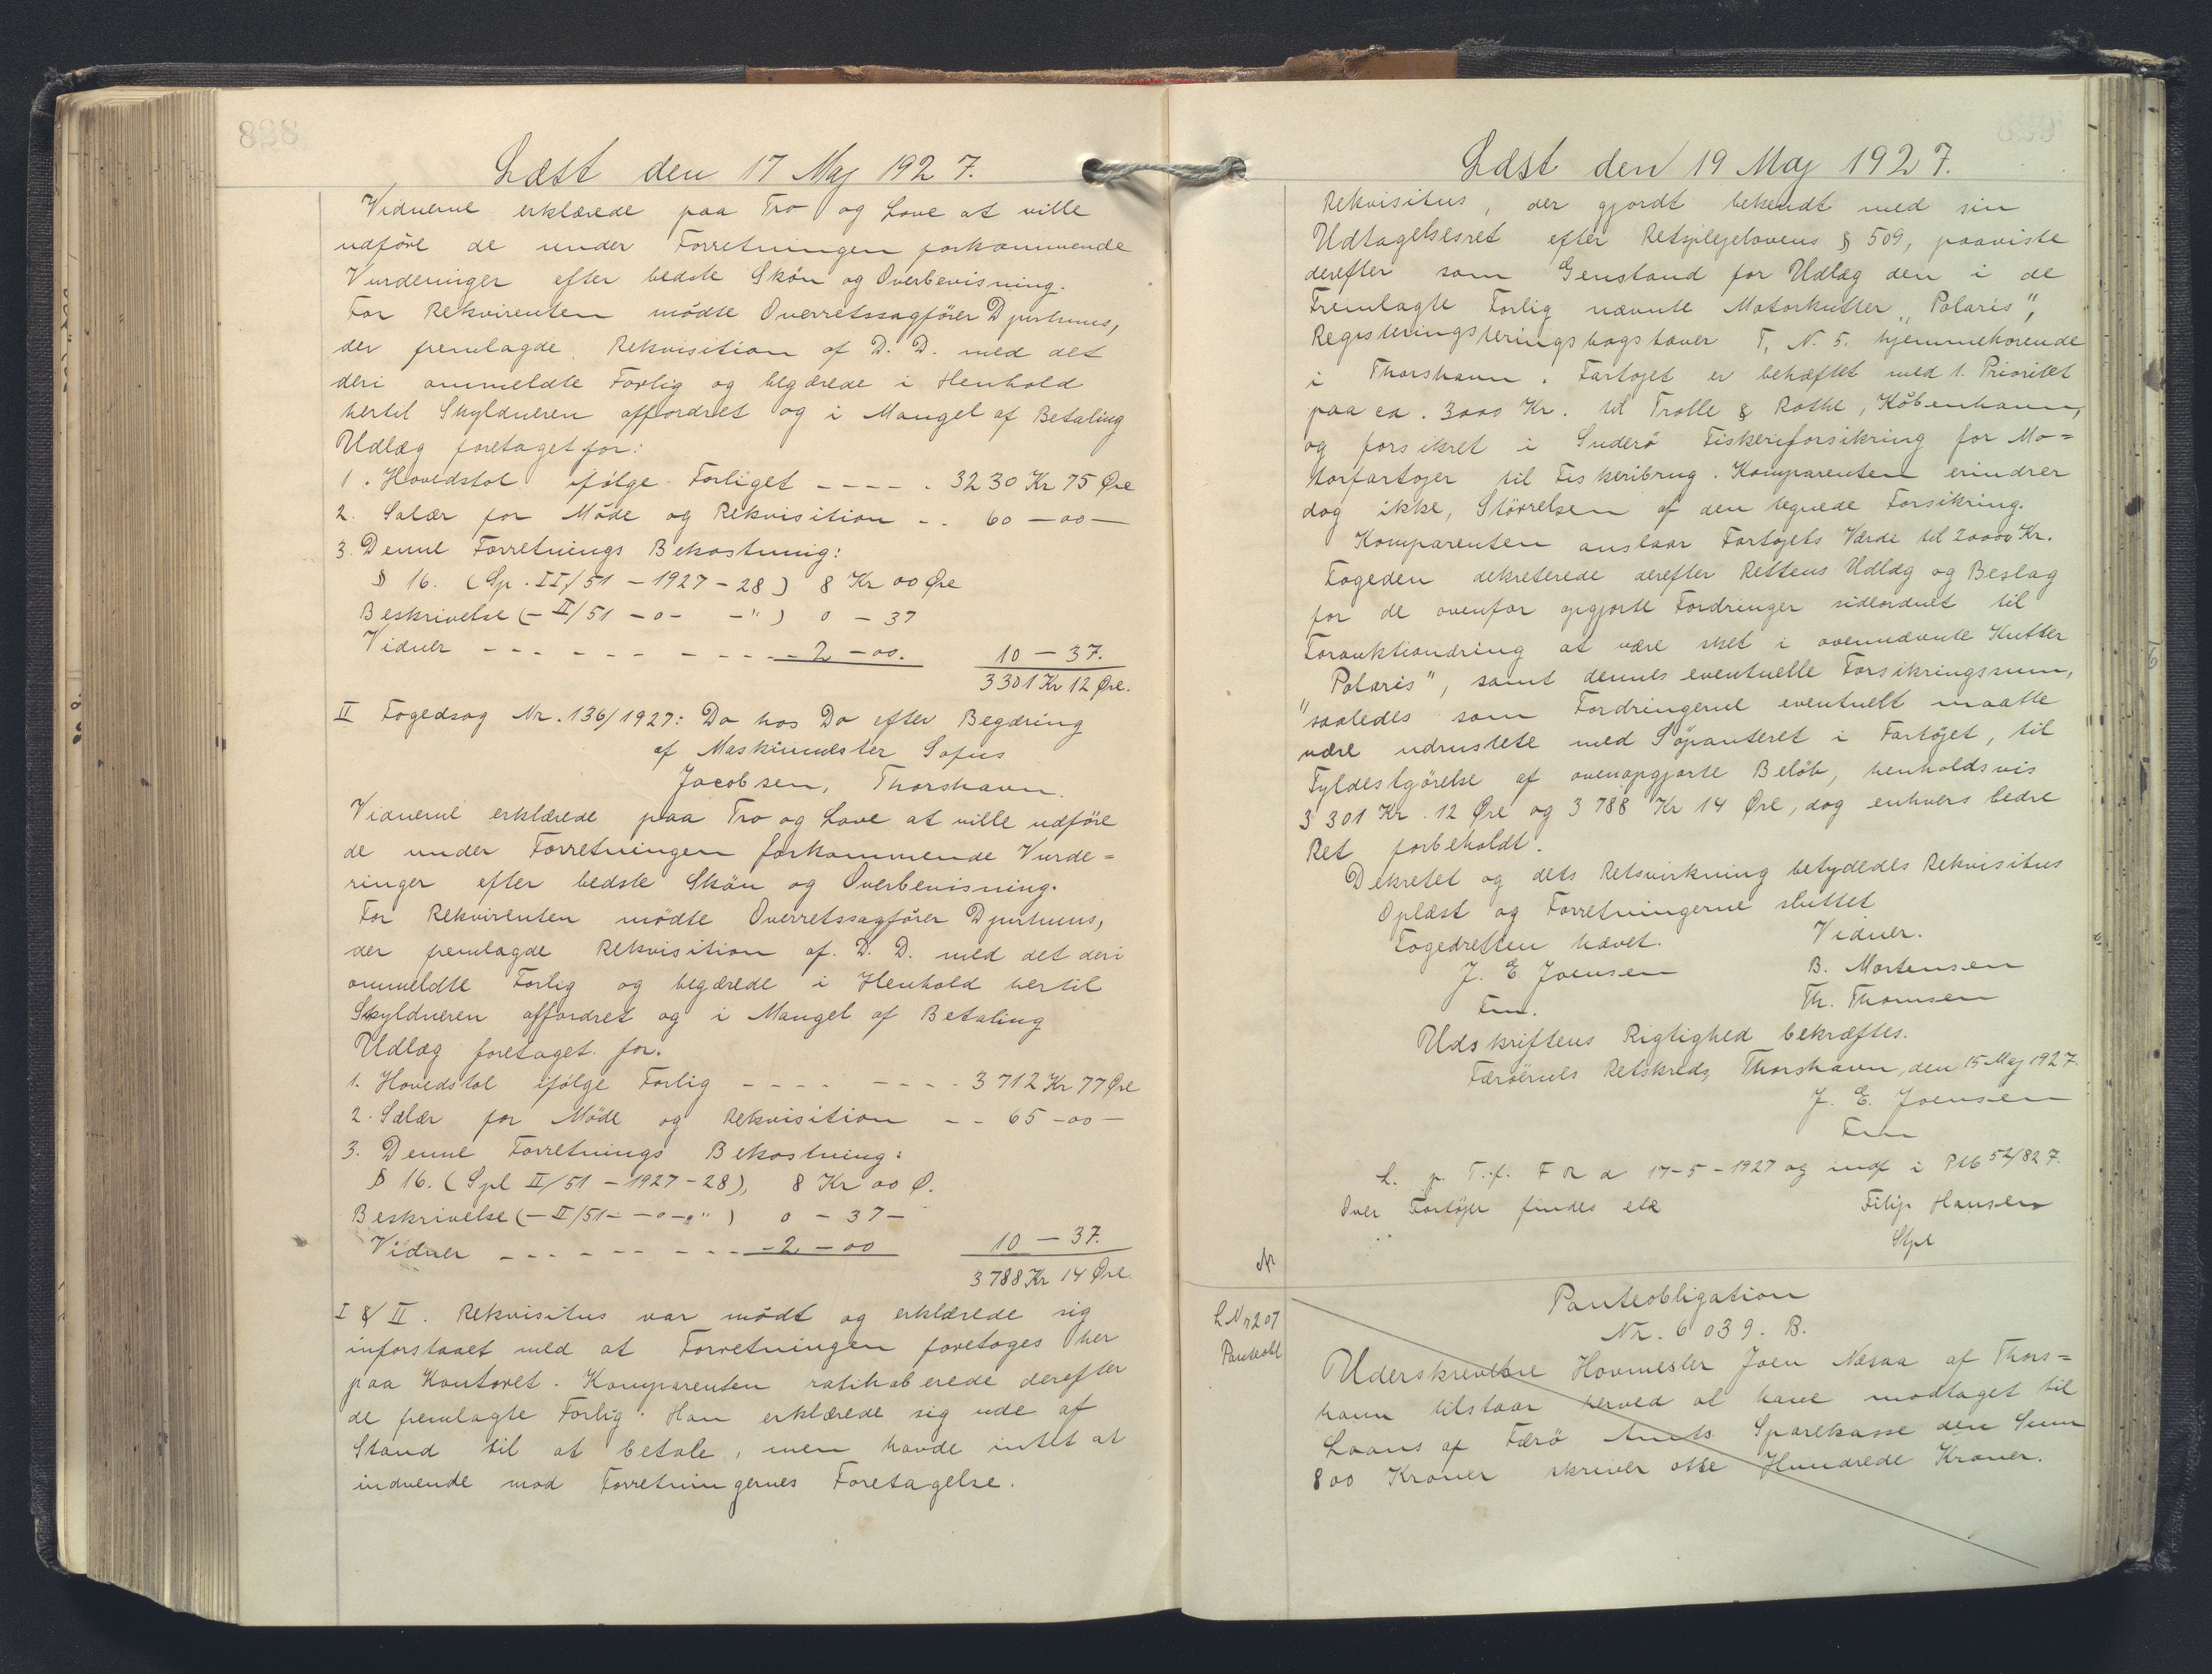 Læst den 17 Maj 1927.
Vidnerne erklærede paa Tro og Love at ville
udføre de under Forretningen forkommende
Vurderinger efter bedste Skön og Overbevisning.
For Rekvirenten mödte Overretssagförer Djurhuus,
der fremlagde Rekvisition af D. D. med det
deri ommeldte Forlig og begærede i Henhold
hertil Skyldneren affordret og i Mangel af Betaling
Udlæg foretaget for:
1. Hovedstol ifølge Forliget - - - - . 3230 Kr 75 Øre
2. Salær for Möde og Rekvisition - . 60 - 00 -
3. Denne Forretnings Bekostning:
§ 16. (Sp. II/51 - 1927-28) 8 Kr 00 Øre
Beskrivelse (- II/51 -o- -") 0 - 37
Vidner - - - - - - - - - 2 - 00. 10 - 37.
3301 Kr 12 Øre.
II Fogedsag Nr. 136/1927: Do hos Do efter Begæring
af Maskinmester Sofus
Jacobsen, Thorshavn.
Vidnerne erklærede paa Tro og Love at ville udföre
de under Forretningen forkommende Vurde=
ringer efter bedste Skön og Overbevisning.
For Rekvirenten mödte Overretssagförer Djurhuus,
der fremlagde Rekvisition af. D. D. med det deri
ommeldte Forlig og begærede i Henhold hertil
Skyldneren affordret og i Mangel af Betaling
Udlæg foretaget for.
1. Hovedstol ifølge Forlig - - - - - - - - 3712 Kr 77 Øre
2. Salær for Möde og Rekvisition - - 65 - 00 -
3. Denne Forretnings Bekostning:
§ 16. (Spl II/51 - 1927-28), 8 Kr 00 Ø.
Beskrivelse (- II/51- -o- ") 0 - 37 -
Vidner - - - - - - - - 2 - 00 10 - 37.
3788 Kr 14 Øre.
I & II. Rekvisitus var mödt og erklærede sig
inforstaaet med at Forretningen foretoges her
paa Kontoret. Komparenten ratihaberede derefter
de fremlagte Forlig. Han erklærede sig ude af
Stand til at betale, men havde intet at
indvende mod Forretningernes Foretagelse.
Læst den 19 Maj 1927.
Rekvisitus, der gjordt bekendt med sin
Udtagelsesret efter Retsplejelovens § 509, paaviste
derefter som Genstand for Udlæg den i de
Fremlagte Forlig nævnte Motorkutter „Polaris",
Registeringsteringsbogstaver T, N. 5. hjemmehorende
i Thorshavn. Fartojet er behæftet med 1. Prioritet
paa ca. 3000 Kr. til Trolle & Rothe, København,
og forsikret i Suderø Fiskeriforsikring for Mo=
torfartojer til Fiskeribrug. Komparenten erindrer
dog ikke, Störrelsen af den tegnede Forsikring.
Komparenten anslaar Fartojets Værde til 20000 Kr.
Fogeden dekreterede derefter Rettens Udlæg og Beslag
for de ovenfor opgjorte Fordringer sideordnet til
Forauktiondring at være sket i ovennævnte Kutter
„Polaris", samt dennes eventuelle Forsikringssum,
saaledes som Fordringerne eventuelt maatte
være udrustete med Söpanteret i Fartöjet, til
Fyldestgörelse af ovenopgjorte Belöb, henholdsvis
3301 Kr. 12 Øre og 3788 Kr 14 Øre, dog enhvers bedre
Ret forbeholdt.
Dekretet og dets Retsvirkning betydedes Rekvisitus
Oplæst og Forretningerne sluttet
Fogedretten hævet. Vidner.
J. E. Joensen B. Mortensen
Fm. Th. Thomsen
Udskriftens Rigtighed bekræftes.
Færöernes Retskreds, Thorshavn, den 15 Maj 1927.
J. E. Joensen
Fm
L. p. T. f. F R d 17-5-1927 og indf i Ptb 52/827.
Over Fartöjer findes etc Filip Hansen
Spl
Nr
L Nr 207
Panteobl
Panteobligation
Nr. 6039. B.
Uderskrevetne Hovmester Joen Næsaa af Thors=
havn tilstaar herved at have modtaget til
Laans af Færö Amts Sparekasse den Sum
800 Kroner skriver otte Hundrede Kroner.